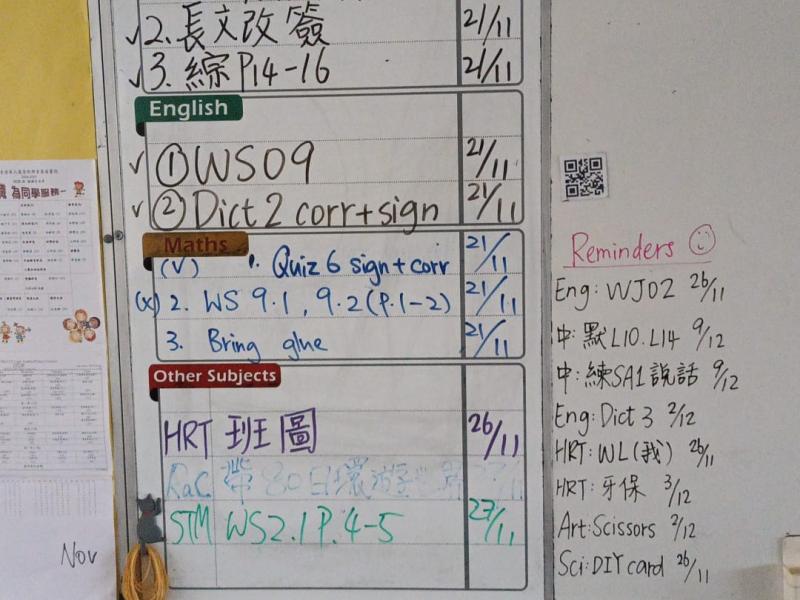 ✓2. 長文改簽 21/11
✓3. 綜P14-16 21/11
English
✓ ① WS09 21/11
✓ ② Dict 2 corr+sign 21/11
Maths
(✓) 1. Quiz 6 sign+corr 21/11
(x) 2. WS 9.1, 9.2(P.1-2) 21/11
3. Bring glue 21/11
Other Subjects
HRT 班圖 26/11
RaC 帶80日環遊世界 27/11
STM WS2.1 P.4-5 27/11
為同學服務
Nov
Reminders ☺
Eng: WJ02 26/11
中:默L10.L14 9/12
中:練SA1說話 9/12
Eng: Dict 3 2/12
HRT: WL(我) 26/11
HRT: 牙保 3/12
Art: Scissors 2/12
Sci: DIY card 26/11